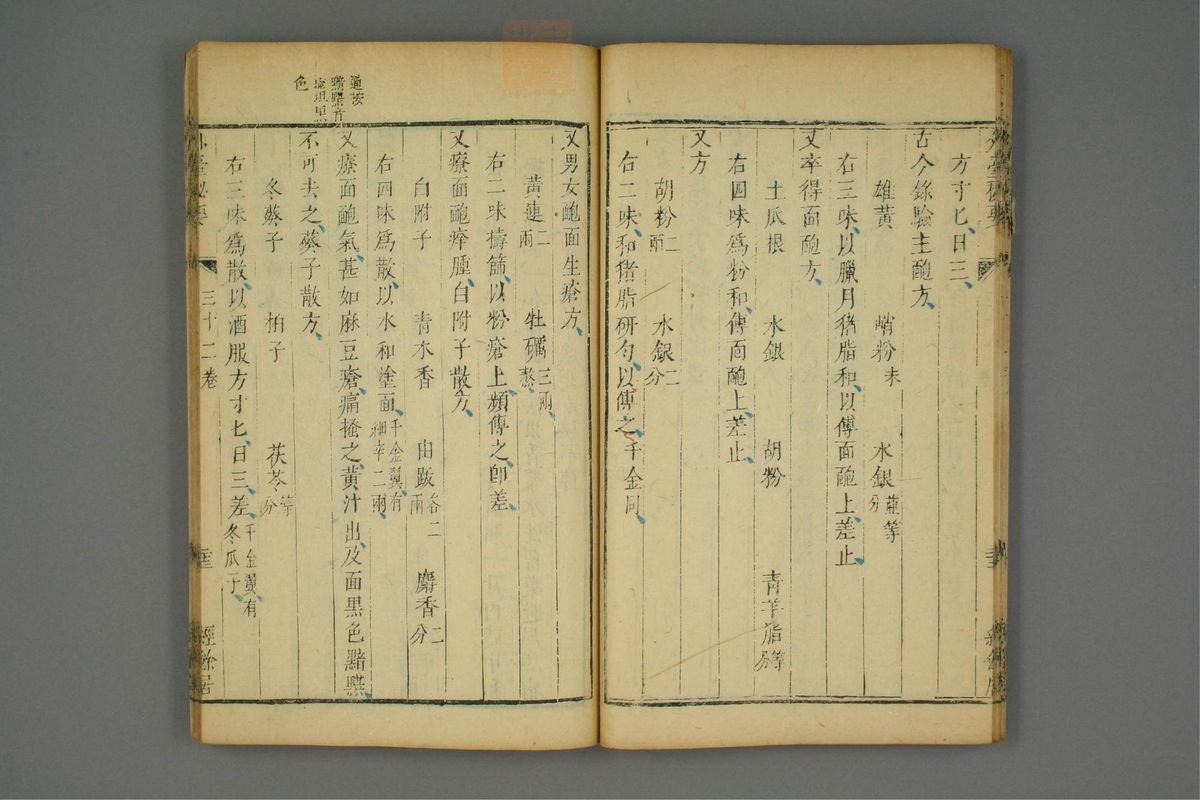 方寸匕日三
古今錄驗主皰方
雄黃 峭粉末 水銀並等分
右三味以臘月猪脂和以傅面皰上差止
又卒得面皰方
土瓜根 水銀 胡粉 青羊脂等分
右四味為粉和傅面皰上差止
又方
胡粉二兩 水銀二分
右二味和猪脂研勻以傅之千金同
又男女皰面生瘡方
黃連二兩 牡礪三兩熬
右二味擣篩以粉瘡上頻傅之即差
又療面皰痒腫白附子散方
白附子 青木香 由跋各二兩 麝香二分
右四味為散以水和塗面千金翼有細辛二兩
又療面皰氣甚如麻豆瘡痛搔之黃汁出及面黑色黯黣
不可去之葵子散方
冬葵子 柏子 茯苓等分
右三味為散以酒服方寸匕日三差千金翼有冬瓜子
外臺秘要 三十二卷 經餘居
色